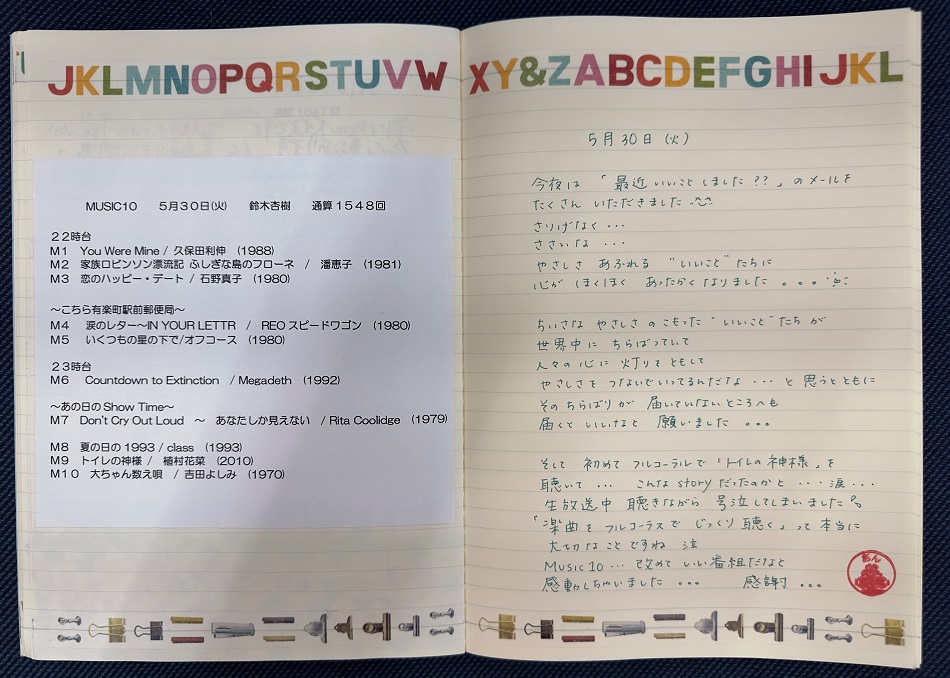 JKLMNOPQRSTUVW
MUSIC10　5月30日(火)　鈴木杏樹　通算1548回
22時台
M1　You Were Mine / 久保田利伸　(1988)
M2　家族ロビンソン漂流記 ふしぎな島のフローネ　/　潘恵子　(1981)
M3　恋のハッピー・デート / 石野真子　(1980)
～こちら有楽町駅前郵便局～
M4　涙のレター～IN YOUR LETTR　/　REOスピードワゴン　(1980)
M5　いくつもの星の下で/オフコース　(1980)
23時台
M6　Countdown to Extinction　/ Megadeth　(1992)
～あの日のShow Time～
M7　Don't Cry Out Loud　～　あなたしか見えない　/ Rita Coolidge　(1979)
M8　夏の日の1993 / class　(1993)
M9　トイレの神様 /　植村花菜　(2010)
M10　大ちゃん数え唄　/ 吉田よしみ　(1970)
XY&ZABCDEFGHIJKL
5月30日(火)
今夜は「最近いいことしました??」のメールを
たくさん いただきました
さりげなく・・・
ささいな・・・
やさしさ あふれる "いいこと"たちに
心が ほくほく あったかく なりました 。。。
ちいさな やさしさの こもった "いいこと"たちが
世界中に ちらばっていて
人々の心に 灯りを ともして
やさしさを つないでいってるんだな・・・と思うとともに
そのちらばりが 届いていないところへも
届くと いいなと 願いました 。。。
そして 初めて フルコーラルで「トイレの神様」を
聴いて・・・ こんな storyだったのかと・・・涙・・・
生放送中 聴きながら 号泣してしまいました
「楽曲を フルコーラスで じっくり 聴く」って本当に
大切なことですね 泣
Music10・・・改めて いい番組だなと
感動しちゃいました 。。。　感謝 。。。
あん